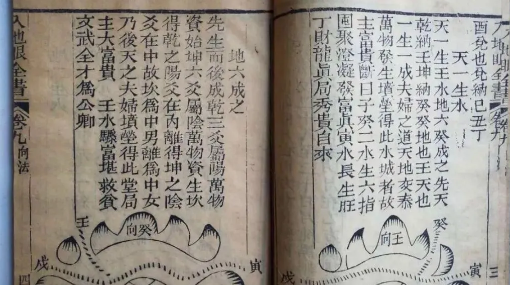 酉兌也兌納巳丑丁
天一生水
天一生壬水地六癸成之先天
乾納壬坤納癸癸地也壬天也
一生一成夫婦之道天地交泰
萬物發生墳塋得此水城者故
主富貴斷曰子癸二水生六指
囤聚澄凝發富眞寅水長生旺
丁財龍眞局秀貴自來
癸
壬向
戌
三
地六成之
先生而後成乾三爻屬陽萬物
資始坤六爻屬陰萬物資生坎
得乾之陽爻在内離得坤之陰
爻在中故坎爲中男離爲中女
乃後天之夫婦墳塋得此堂局
主大富貴 壬水驟富堪救貧
文武全才爲公卿
癸向
壬
寅
戌
入地眼全書
卷九 向法
四